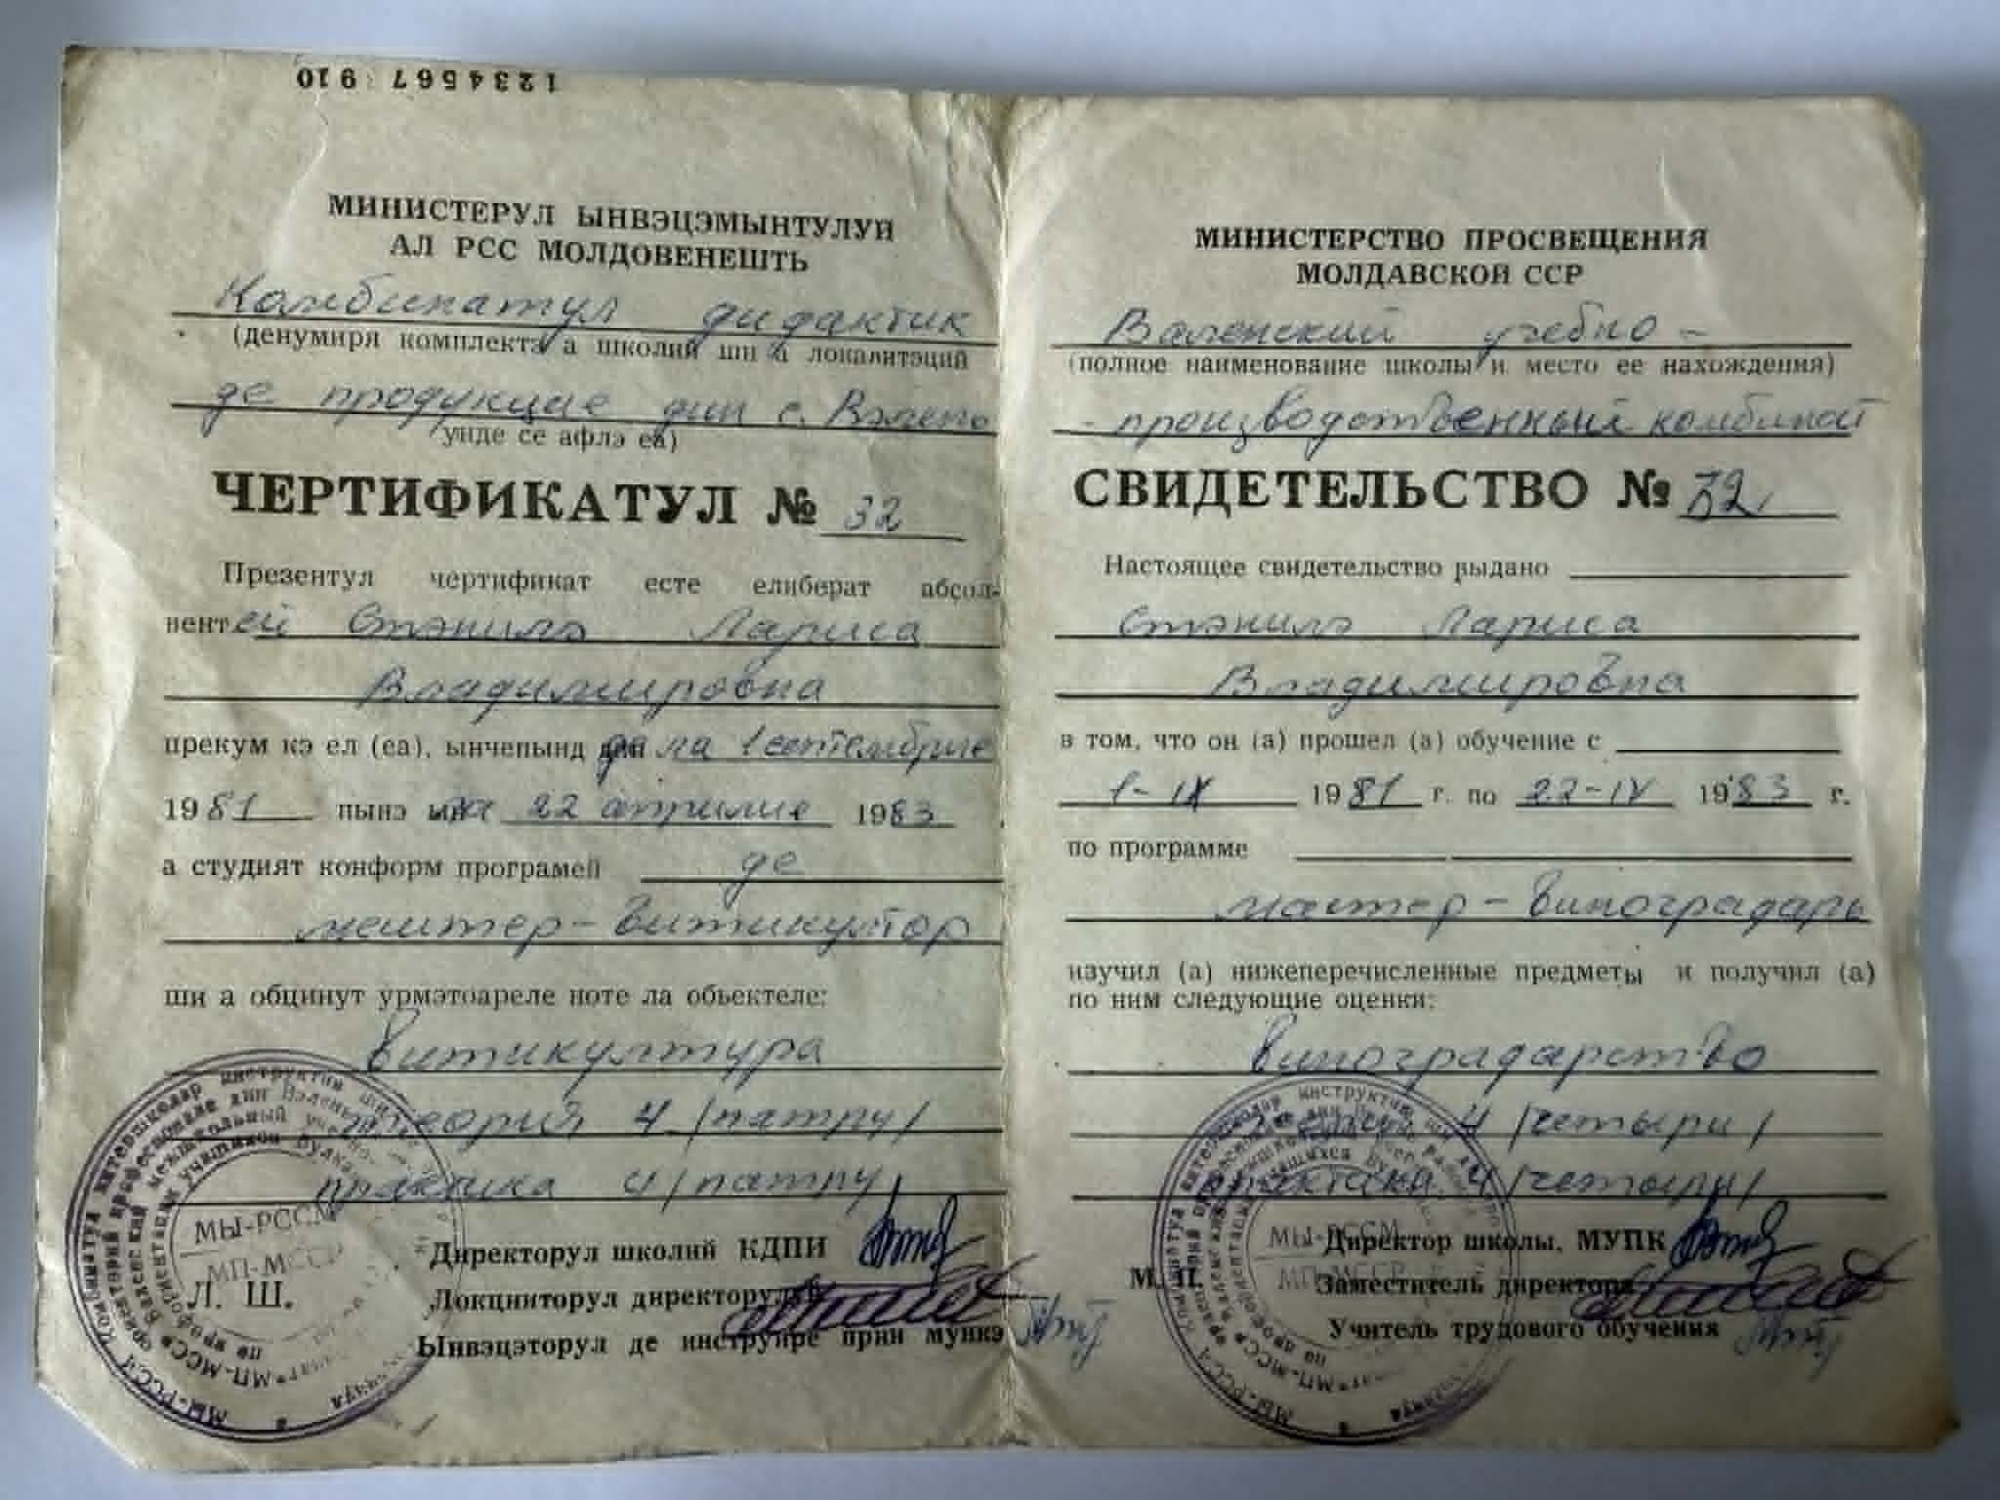 1234567 910
МИНИСТЕРУЛ ЫНВЭЦЭМЫНТУЛУЙ
АЛ РСС МОЛДОВЕНЕШТЬ
Комбинатул дидактик
(денумиря комплектэ а школий ши а локалитэций
де продукцие дин с. Вэлень
унде се афлэ еа)
ЧЕРТИФИКАТУЛ № 32
Презентул чертификат есте елиберат абсол-
вентей Стэнилэ Лариса
Владимировна
прекум кэ ел (еа), ынчепынд де ла 1 септембрие
1981 пынэ ла 22 априлие 1983
а студият конформ програмей де
мештер-витикултор
ши а обцинут урмэтоареле ноте ла обьектеле:
витикултура
теория 4 /патру/
практика 4 /патру/
МЫ-РССМ
МП-МССР
Л. Ш.
Директорул школий КДПИ
Локцииторул директорулуй
Ынвэцэторул де инструире прин мункэ
МИНИСТЕРСТВО ПРОСВЕЩЕНИЯ
МОЛДАВСКОЙ ССР
Валенский учебно-
(полное наименование школы и место ее нахождения)
-производственный комбинат
СВИДЕТЕЛЬСТВО № 32
Настоящее свидетельство выдано
Стэнилэ Лариса
Владимировна
в том, что он (а) прошел (а) обучение с
1-IX 1981 г. по 22-IV 1983 г.
по программе
мастер-виноградарь
изучил (а) нижеперечисленные предметы и получил (а)
по ним следующие оценки:
виноградарство
4 /четыри/
практика 4 /четыри/
МЫ-РССМ
МП-МССР
М. П.
Директор школы, МУПК
Заместитель директора
Учитель трудового обучения